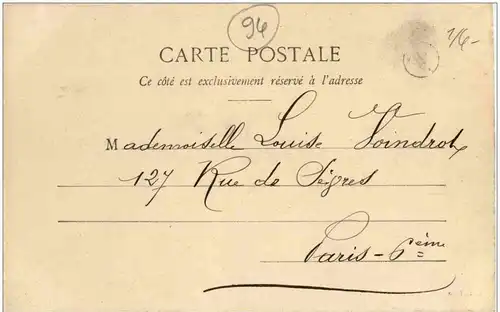 94
7/6-
CARTE POSTALE
Ce côté est exclusivement réservé à l'adresse
Mademoiselle Louise Voindrot
127 Rue de Sègres
Paris-6ème